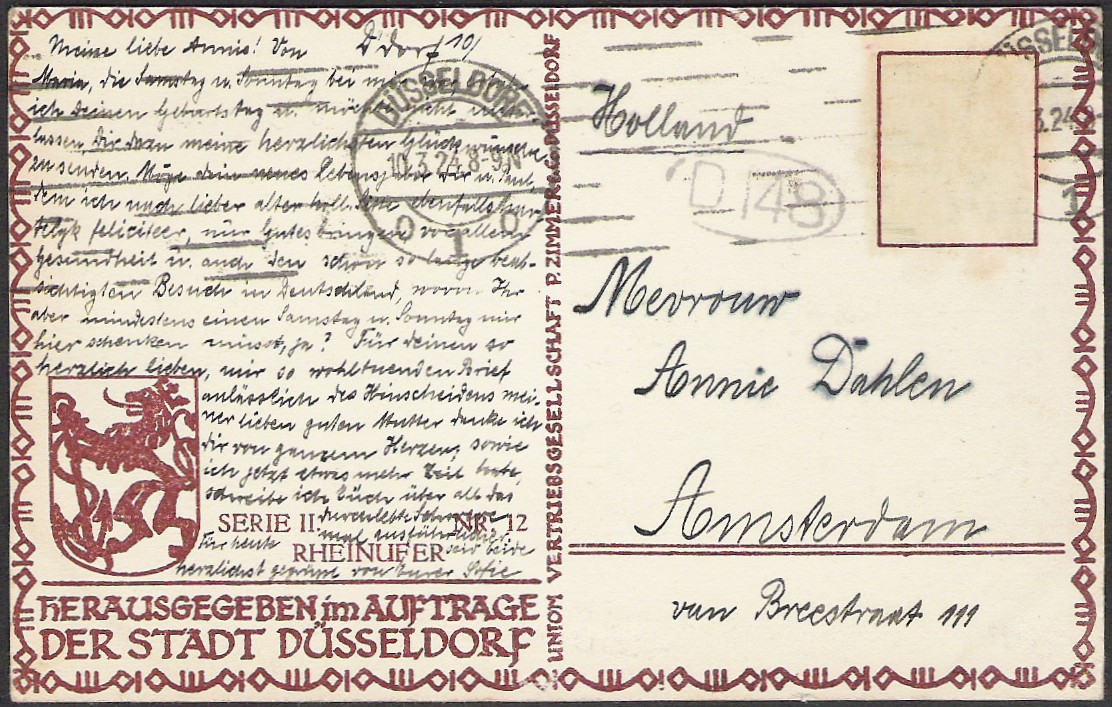 Meine liebe Annie! Von D'dorf 10/
Maria, die Samstag u. Sonntag bei
ich deinen Geburtstag u. möchte nicht
lassen Dir dazu meine herzlichsten Glückwünsche
zu senden. Möge dein neues Lebensjahr dir u. Paul
dem ich nach lieber alter holl. Sitte ebenfalls har-
telijk feliciteer, nur Gutes bringen vor allem
Gesundheit u. auch den schon so lange beab-
sichtigten Besuch in Deutschland, wovon Ihr
aber mindestens einen Samstag u. Sonntag mir
hier schenken müsst, ja? Für deinen so
herzlich lieben, mir so wohltuenden Brief
anlässlich des Hinscheidens mei-
ner lieben guten Mutter danke ich
dir von ganzem Herzen, sowie
ich jetzt etwas mehr Zeit habe,
schreibe ich Euch über all das
durchlebte Schwere
mal ausführlicher.
Für heute seid beide
herzlichst gegrüsst von Eurer Sofie
SERIE II: NR. 12
RHEINUFER
HERAUSGEGEBEN im AUFTRAGE
DER STADT DÜSSELDORF
UNIOM VERTRIEBSGESELLSCHAFT P. ZIMMER & Co. DÜSSELDORF
DÜSSELDORF
10.3.24.8-9N
1
DÜSSELD
3.24
1
D 148
Holland
Mevrouw
Annie Dahlen
Amsterdam
van Breestraat 111